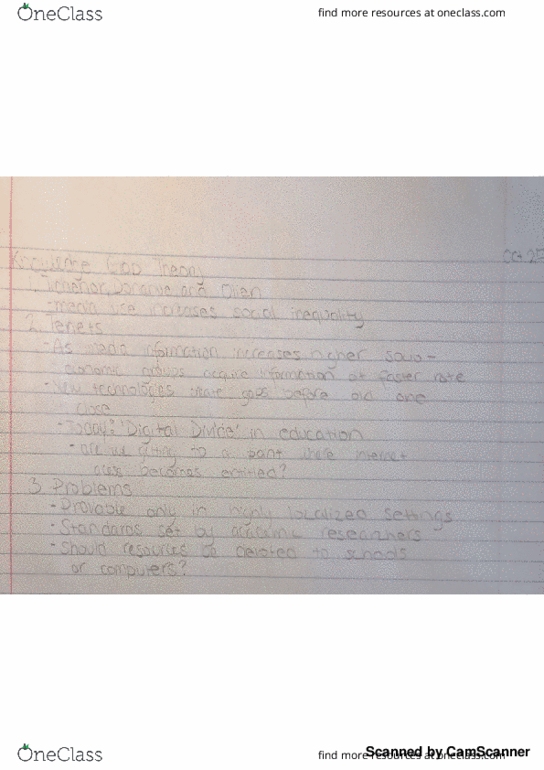 OneClass
find more resources at oneclass.com
Oct 27
Knowledge Gap Theory
1. Tichenor, Donohue and Olien
-media use increases social inequality
2. Tenets
-As media information increases higher socio-
economic groups acquire information at faster rate
-New technologies create gaps before old one
close
-Today: 'Digital Divide' in education
-are we getting to a point where internet
access becomes entitled?
3. Problems
-Provable only in highly localized settings
-Standards set by academic researchers
-Should resources be devoted to schools
or computers?
OneClass
find more resources at oneclass.com
Scanned by CamScanner